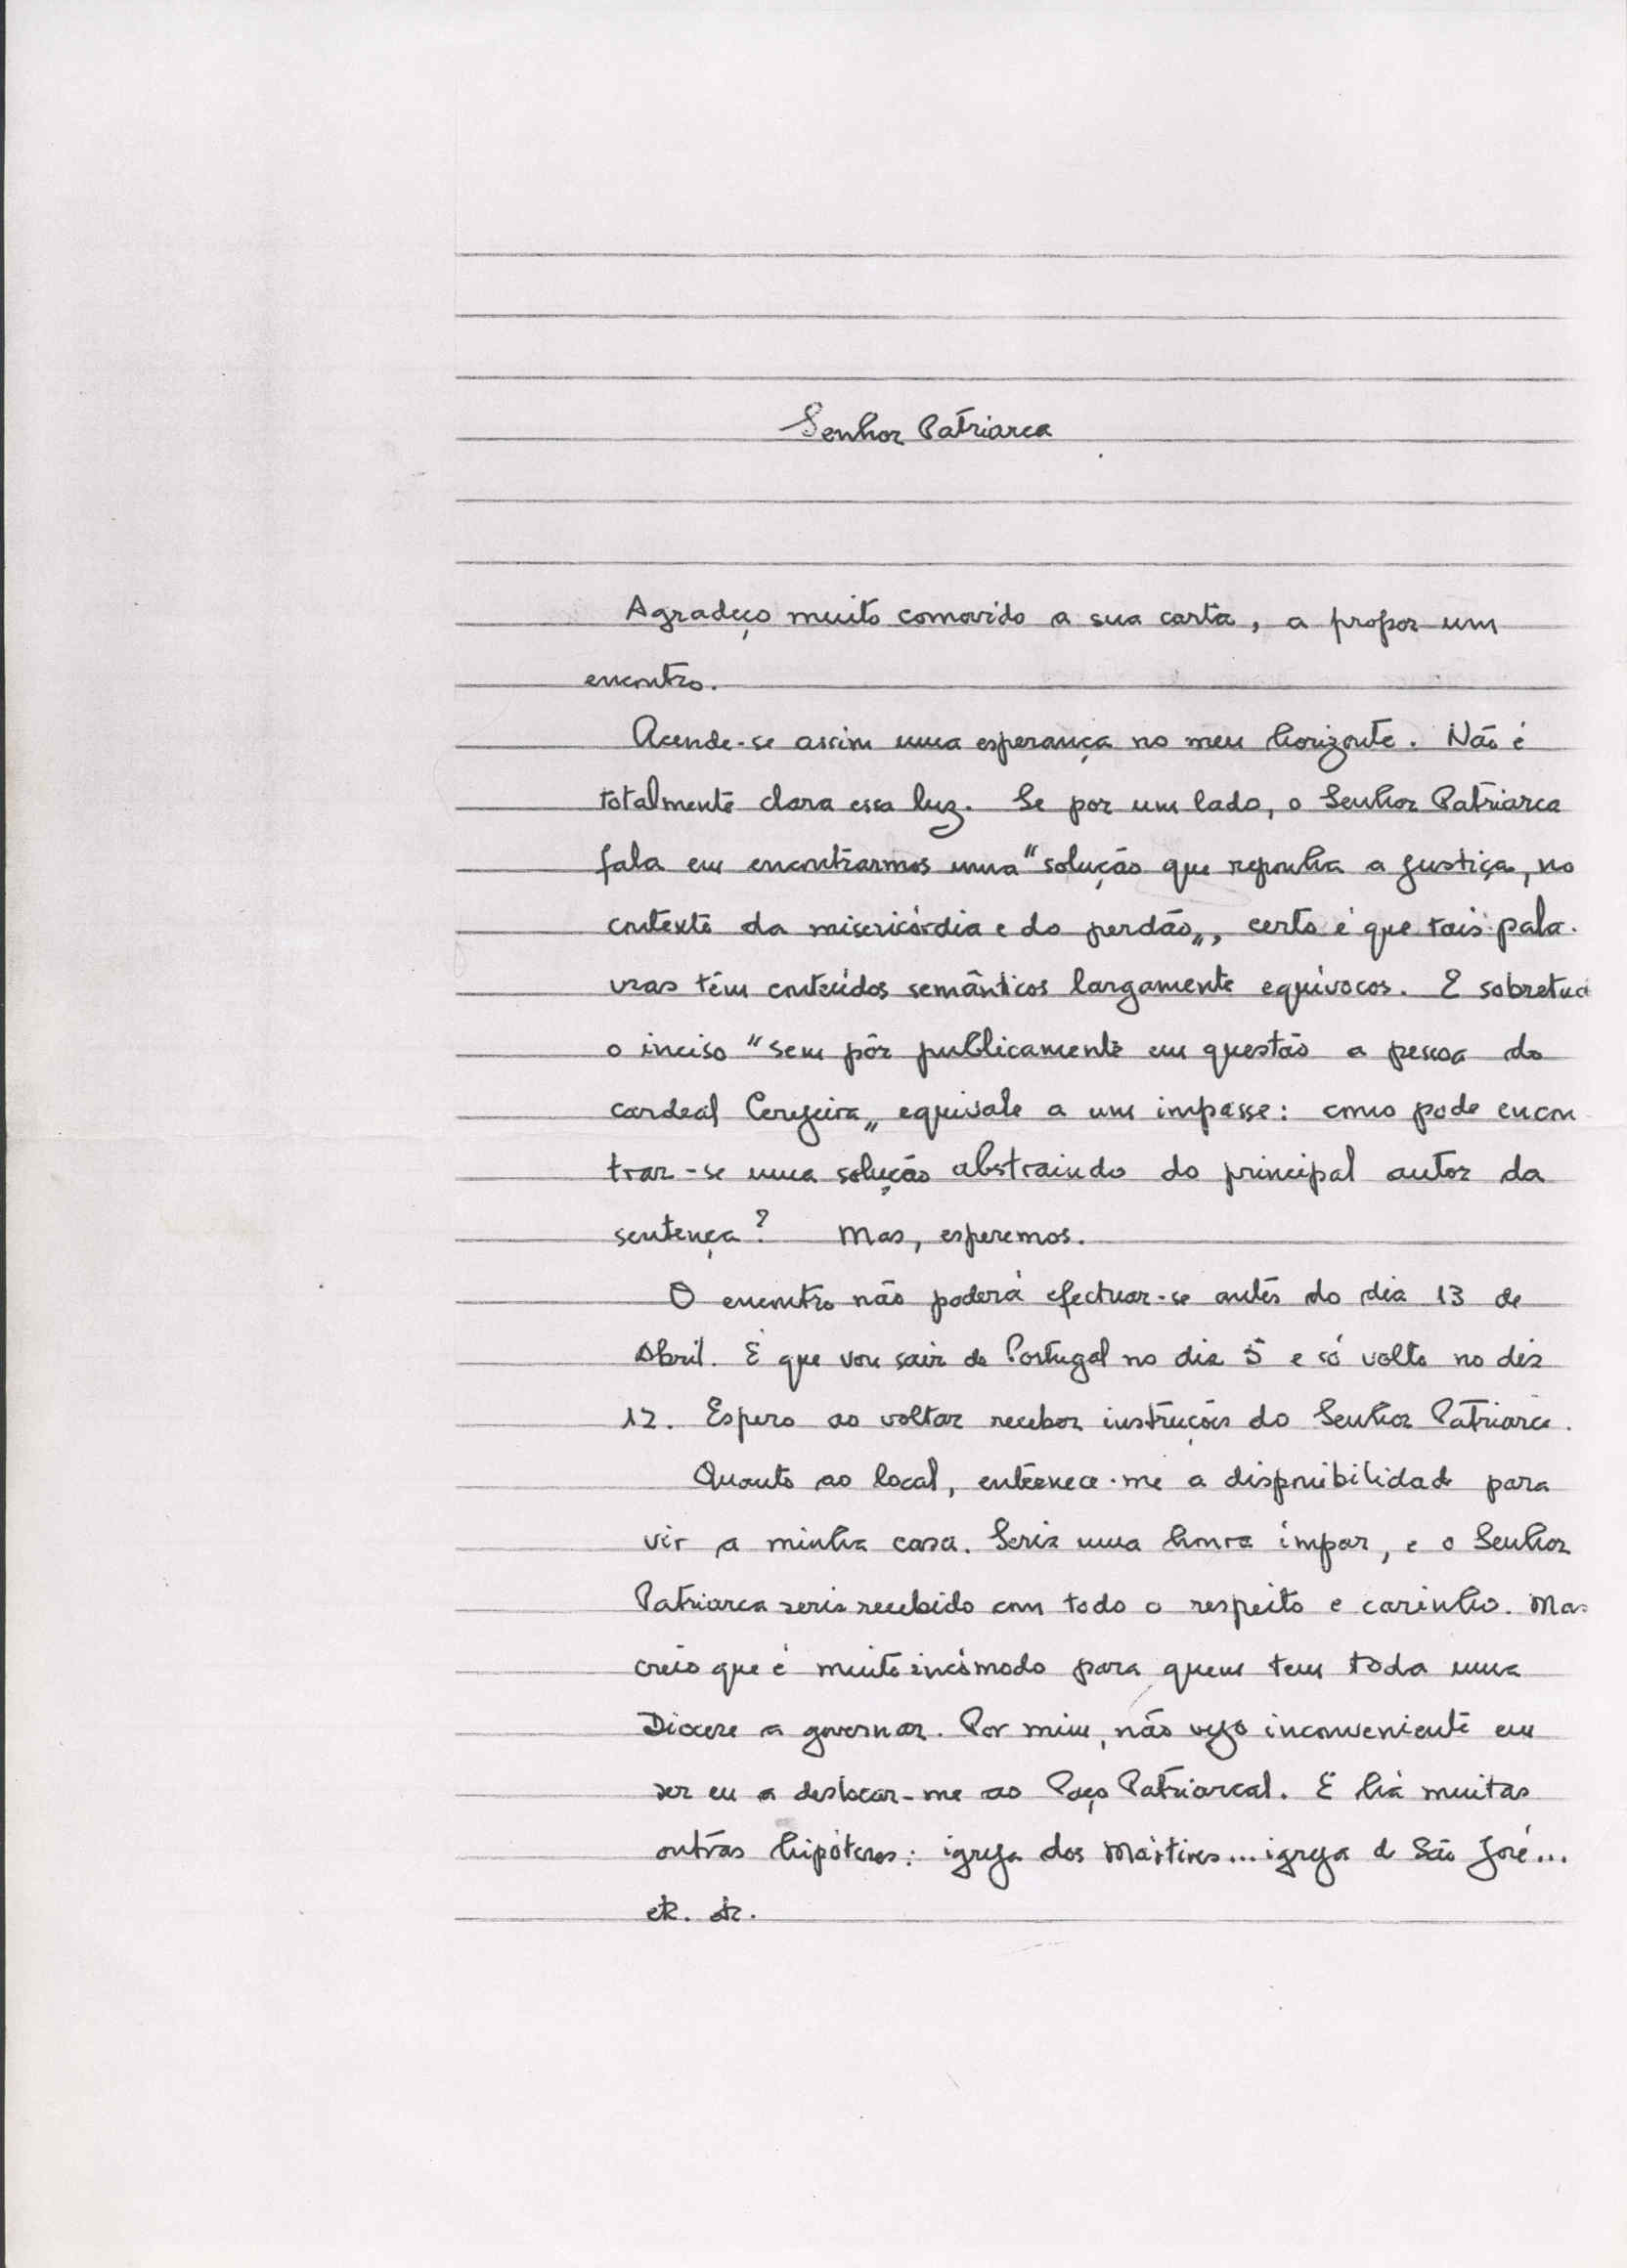 Senhor Patriarca
Agradeço muito comovido a sua carta, a propor um
encontro.
Acende-se assim uma esperança no meu horizonte. Não é
totalmente clara essa luz. Se por um lado, o Senhor Patriarca
fala em encontrarmos uma "solução que reponha a justiça, no
contexto da misericórdia e do perdão", certo é que tais pala-
vras têm conteúdos semânticos largamente equívocos. E sobretud
o inciso "sem pôr publicamente em questão a pessoa do
cardeal Cerejeira" equivale a um impasse: como pode encon
trar-se uma solução abstraindo do principal autor da
sentença? Mas, esperemos.
O encontro não poderá efectuar-se antes do dia 13 de
Abril. É que vou sair de Portugal no dia 5 e só volto no dia
12. Espero ao voltar receber instruções do Senhor Patriarca.
Quanto ao local, enternece-me a disponibilidade para
vir a minha casa. Seria uma honra ímpar, e o Senhor
Patriarca seria recebido com todo o respeito e carinho. Mas
creio que é muito incómodo para quem tem toda uma
Diocese a governar. Por mim, não vejo inconveniente em
ser eu a deslocar-me ao Paço Patriarcal. E há muitas
outras hipóteses: igreja dos Mártires... igreja de São José...
etc. etc.